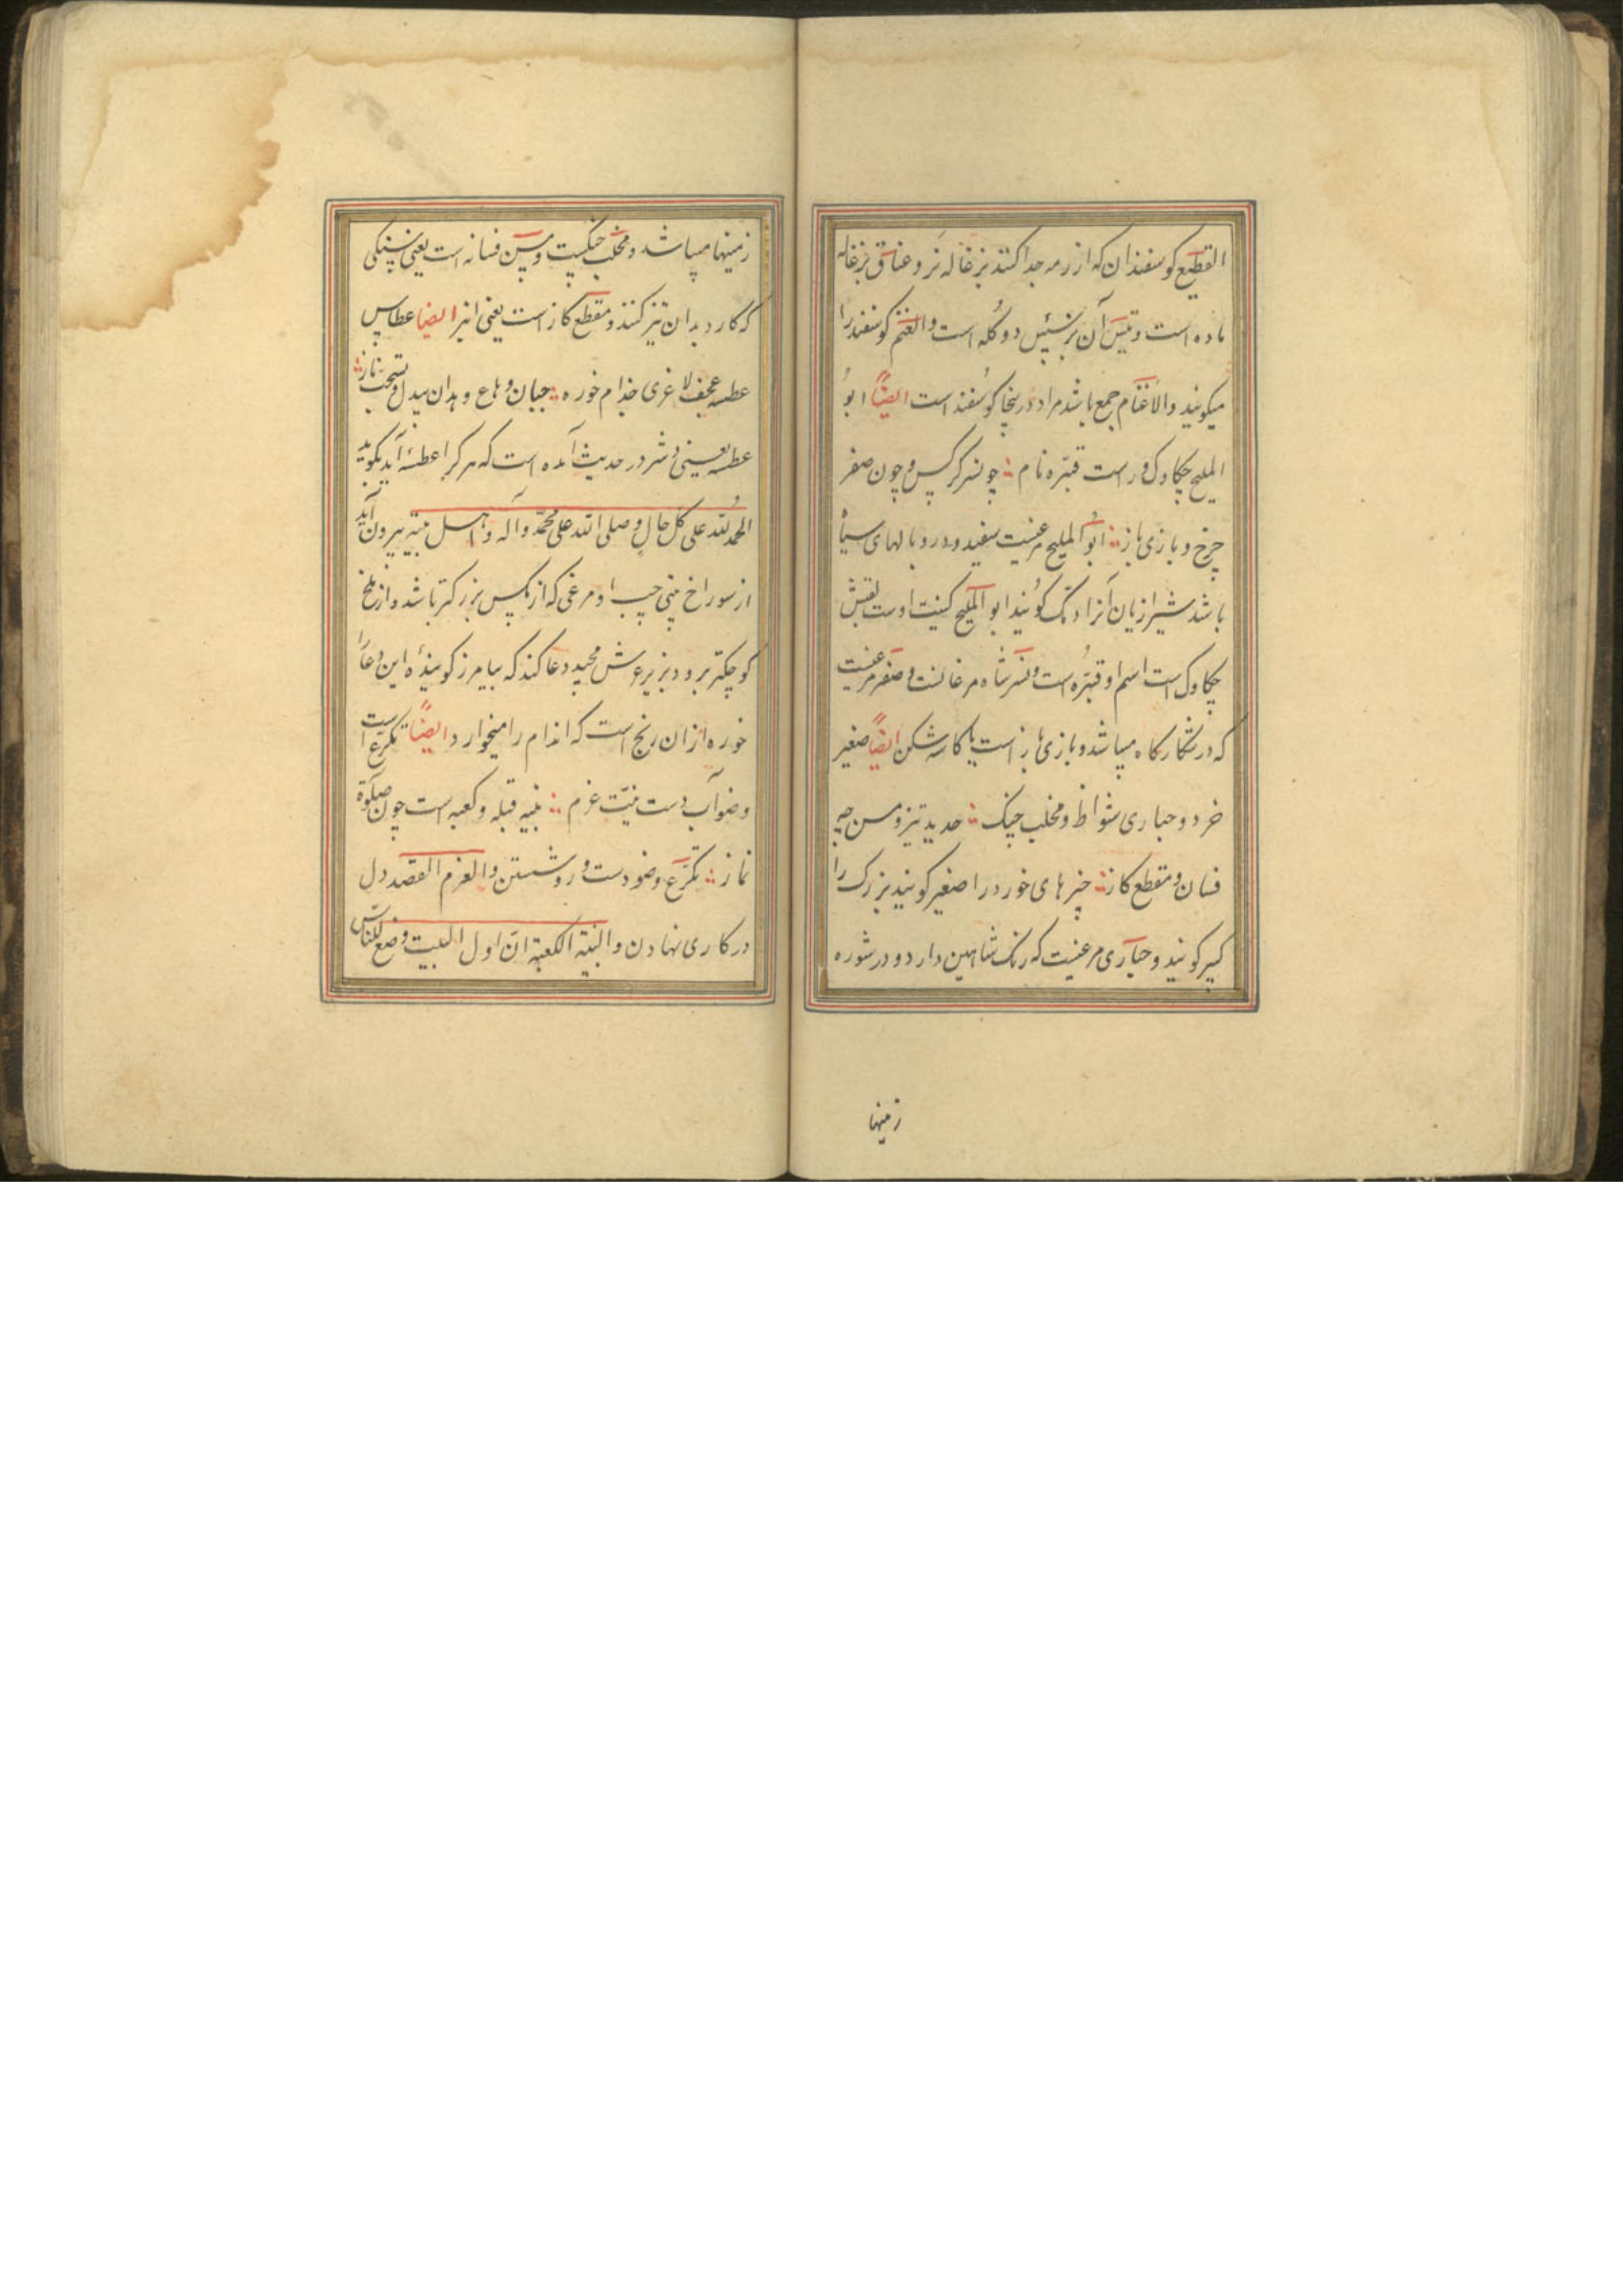 القطیع کوسفندان که از رمه جدا کنند بزغاله نر و عناق بزغاله
ماده است و تیس آن بز پیش دو کله است والغنم کوسفند را
میکویند والاغنام جمع باشد مراد درینجا کوسفند است ایضاً ابو
الملیح چکاوک و راست قبّره نام چو نسر کرکس و چون صقر
چرخ و بازی باز ابو الملیح مرغیست سفید و در و بالهای سیاه
باشد شیرازیان آنرا کویند ابو الملیح کنیت اوست لقبش
چکاوک است اسم او قبّره است و نسر شاه مرغانست و صقر مرغیست
که در شکارکاه میباشد و بازی باز است یا کاسه شکن ایضاً صغیر
خرد و حباری شواظ و مخلب چنک حدید تیز و مسن چه
فسان و مقطع کاز چیز های خورد را صغیر کویند بزرک را
کبیر کویند و حباری مرغیست که رنک شاهین دارد و در شوره
زمینها
زمینها میباشد و مخلب چنکیست و مسن فسانه است یعنی سنکی
که کارد بدان تیز کنند و مقطع کاز است یعنی انبر ایضا عطاس
عطسه عجف لاغری جذام خوره جبان و هاع و هدان بیدل و
عطسه یعنی در حدیث آمده است که هر کرا عطسه آید بکوید
الحمد لله علی کل حال و صلی الله علی محمّد و آله و اهل بیته بیرون آید
از سوراخ بینی چپ او مرغی که از مکس بزرکتر باشد و از ملخ
کوچکتر برود بزیر عرش مجید دعا کند که بیامرز کوینده این دعا را
خوره ازان رنج است که اندام را میخوارد ایضاً تکرّع است
وضو آب دست نیّت عزم بنیه قبله و کعبه است چون صلوة
نماز تکرّع وضو دست و رو شستن والعزم القصد دل
در کاری نهادن و البنیة الکعبة انّ اول البیت وضع للنّاس